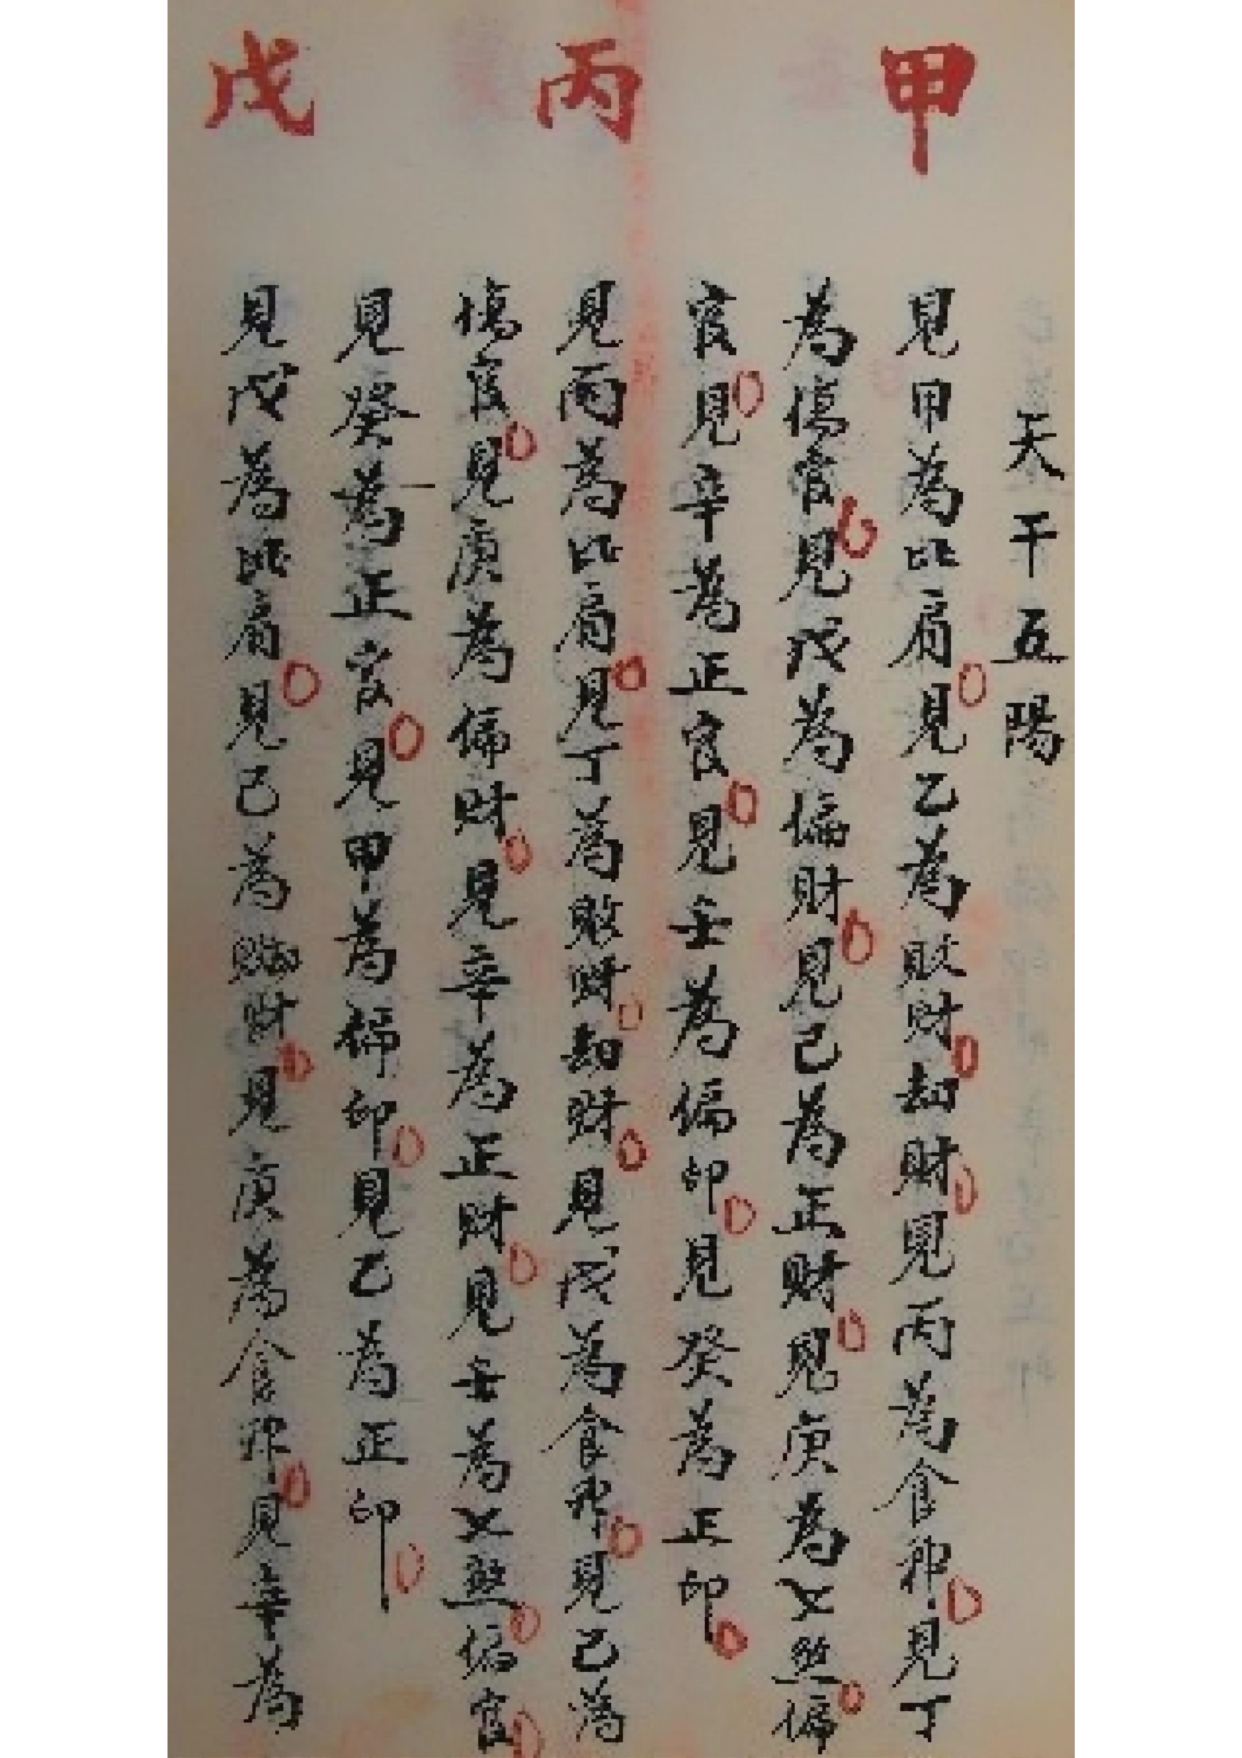 天干五陽
甲
見甲為比肩見乙為敗財劫財見丙為食神見丁
為傷官見戊為偏財見己為正財見庚為七煞偏
官見辛為正官見壬為偏印見癸為正印
丙
見丙為比肩見丁為敗財劫財見戊為食神見己為
傷官見庚為偏財見辛為正財見壬為七煞偏官
見癸為正官見甲為偏印見乙為正印
戊
見戊為比肩見己為財見庚為食神見辛為